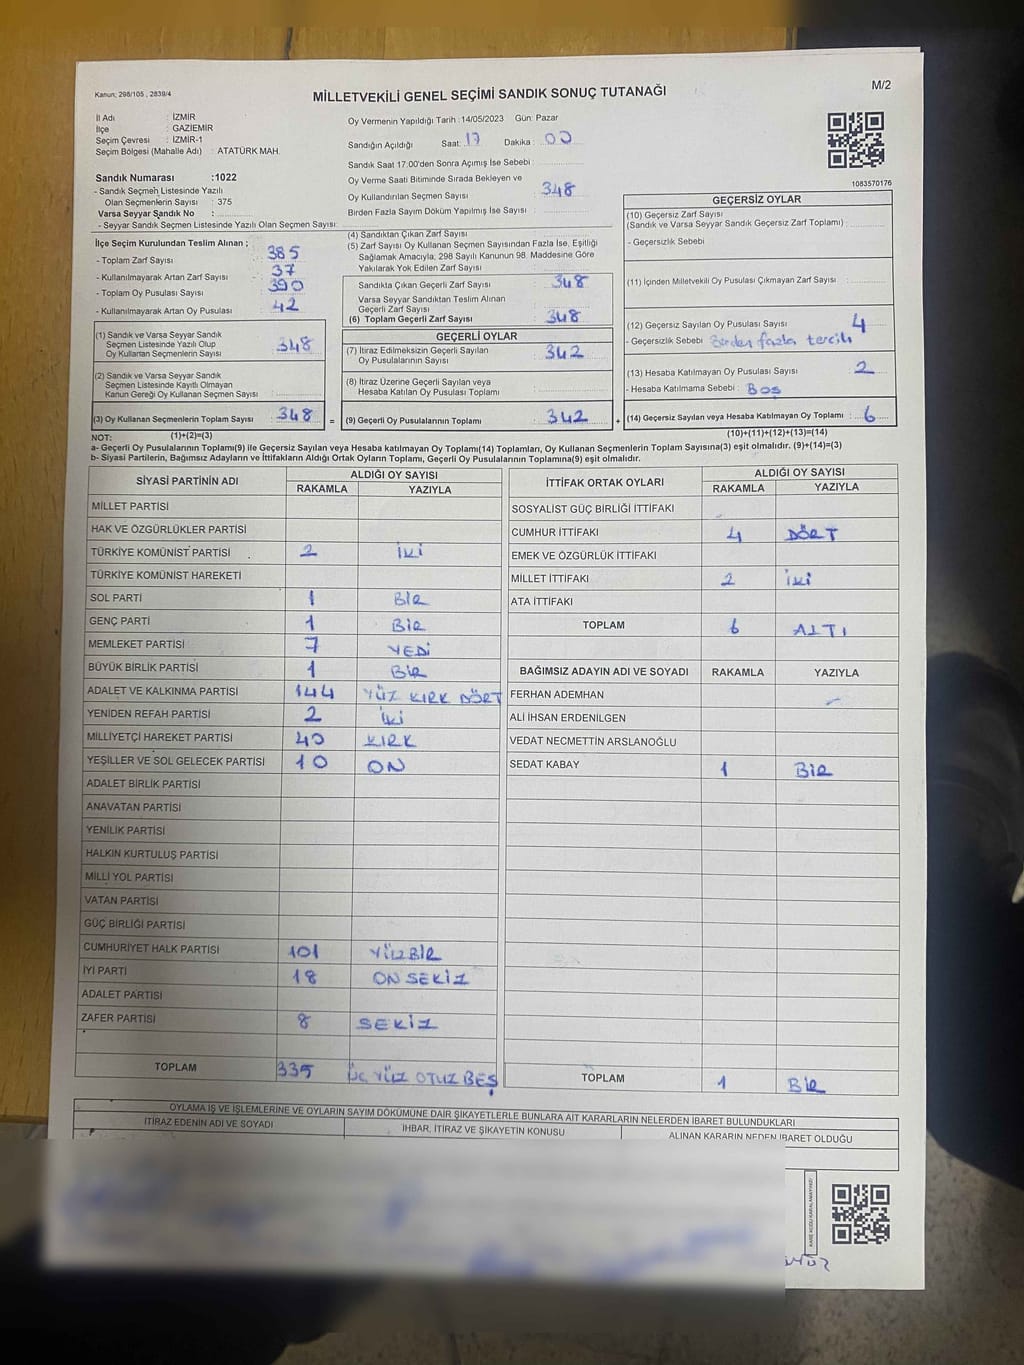 Kanun: 298/105 , 2839/4
M/2
MİLLETVEKİLİ GENEL SEÇİMİ SANDIK SONUÇ TUTANAĞI
İl Adı : İZMİR
İlçe : GAZİEMİR
Seçim Çevresi : İZMİR-1
Seçim Bölgesi (Mahalle Adı) : ATATÜRK MAH.
Sandık Numarası :1022
- Sandık Seçmen Listesinde Yazılı
Olan Seçmenlerin Sayısı : 375
Varsa Seyyar Sandık No :
- Seyyar Sandık Seçmen Listesinde Yazılı Olan Seçmen Sayısı:
Oy Vermenin Yapıldığı Tarih :14/05/2023 Gün: Pazar
Sandığın Açıldığı Saat: 17 Dakika : 00
Sandık Saat 17:00'den Sonra Açımış İse Sebebi :
Oy Verme Saati Bitiminde Sırada Bekleyen ve
Oy Kullandırılan Seçmen Sayısı : 348
Birden Fazla Sayım Döküm Yapılmış İse Sayısı :
1083570176
İlçe Seçim Kurulundan Teslim Alınan ;
- Toplam Zarf Sayısı : 385
- Kullanılmayarak Artan Zarf Sayısı : 37
- Toplam Oy Pusulası Sayısı : 390
- Kullanılmayarak Artan Oy Pusulası : 42
(1) Sandık ve Varsa Seyyar Sandık
Seçmen Listesinde Yazılı Olup
Oy Kullanan Seçmenlerin Sayısı : 348
(2) Sandık ve Varsa Seyyar Sandık
Seçmen Listesinde Kayıtlı Olmayan
Kanun Gereği Oy Kullanan Seçmen Sayısı :
(3) Oy Kullanan Seçmenlerin Toplam Sayısı : 348
(1)+(2)=(3)
(4) Sandıktan Çıkan Zarf Sayısı :
(5) Zarf Sayısı Oy Kullanan Seçmen Sayısından Fazla İse, Eşitliği
Sağlamak Amacıyla; 298 Sayılı Kanunun 98. Maddesine Göre
Yakılarak Yok Edilen Zarf Sayısı :
Sandıkta Çıkan Geçerli Zarf Sayısı : 348
Varsa Seyyar Sandıktan Teslim Alınan
Geçerli Zarf Sayısı :
(6) Toplam Geçerli Zarf Sayısı : 348
GEÇERLİ OYLAR
(7) İtiraz Edilmeksizin Geçerli Sayılan
Oy Pusulalarının Sayısı : 342
(8) İtiraz Üzerine Geçerli Sayılan veya
Hesaba Katılan Oy Pusulası Toplamı :
= (9) Geçerli Oy Pusulalarının Toplamı : 342
GEÇERSİZ OYLAR
(10) Geçersiz Zarf Sayısı
(Sandık ve Varsa Seyyar Sandık Geçersiz Zarf Toplamı) :
- Geçersizlik Sebebi
(11) İçinden Milletvekili Oy Pusulası Çıkmayan Zarf Sayısı :
(12) Geçersiz Sayılan Oy Pusulası Sayısı : 4
- Geçersizlik Sebebi : Birden fazla tercih
(13) Hesaba Katılmayan Oy Pusulası Sayısı : 2
- Hesaba Katılmama Sebebi : Boş
+ (14) Geçersiz Sayılan veya Hesaba Katılmayan Oy Toplamı : 6
(10)+(11)+(12)+(13)=(14)
NOT:
a- Geçerli Oy Pusulalarının Toplamı(9) ile Geçersiz Sayılan veya Hesaba katılmayan Oy Toplamı(14) Toplamları, Oy Kullanan Seçmenlerin Toplam Sayısına(3) eşit olmalıdır. (9)+(14)=(3)
b- Siyasi Partilerin, Bağımsız Adayların ve İttifakların Aldığı Ortak Oyların Toplamı, Geçerli Oy Pusulalarının Toplamına(9) eşit olmalıdır.
SİYASİ PARTİNİN ADI ALDIĞI OY SAYISI
RAKAMLA YAZIYLA
MİLLET PARTİSİ
HAK VE ÖZGÜRLÜKLER PARTİSİ
TÜRKİYE KOMÜNİST PARTİSİ 2 İKİ
TÜRKİYE KOMÜNİST HAREKETİ
SOL PARTİ 1 BİR
GENÇ PARTİ 1 BİR
MEMLEKET PARTİSİ 7 YEDİ
BÜYÜK BİRLİK PARTİSİ 1 BİR
ADALET VE KALKINMA PARTİSİ 144 YÜZ KIRK DÖRT
YENİDEN REFAH PARTİSİ 2 İKİ
MİLLİYETÇİ HAREKET PARTİSİ 40 KIRK
YEŞİLLER VE SOL GELECEK PARTİSİ 10 ON
ADALET BİRLİK PARTİSİ
ANAVATAN PARTİSİ
YENİLİK PARTİSİ
HALKIN KURTULUŞ PARTİSİ
MİLLİ YOL PARTİSİ
VATAN PARTİSİ
GÜÇ BİRLİĞİ PARTİSİ
CUMHURİYET HALK PARTİSİ 101 YÜZ BİR
İYİ PARTİ 18 ON SEKİZ
ADALET PARTİSİ
ZAFER PARTİSİ 8 SEKİZ
TOPLAM 335 ÜÇ YÜZ OTUZ BEŞ
İTTİFAK ORTAK OYLARI ALDIĞI OY SAYISI
RAKAMLA YAZIYLA
SOSYALİST GÜÇ BİRLİĞİ İTTİFAKI
CUMHUR İTTİFAKI 4 DÖRT
EMEK VE ÖZGÜRLÜK İTTİFAKI
MİLLET İTTİFAKI 2 İKİ
ATA İTTİFAKI
TOPLAM 6 ALTI
BAĞIMSIZ ADAYIN ADI VE SOYADI RAKAMLA YAZIYLA
FERHAN ADEMHAN
ALİ İHSAN ERDENİLGEN
VEDAT NECMETTİN ARSLANOĞLU
SEDAT KABAY 1 BİR
TOPLAM 1 BİR
OYLAMA İŞ VE İŞLEMLERİNE VE OYLARIN SAYIM DÖKÜMÜNE DAİR ŞİKAYETLERLE BUNLARA AİT KARARLARIN NELERDEN İBARET BULUNDUKLARI
İTİRAZ EDENİN ADI VE SOYADI İHBAR, İTİRAZ VE ŞİKAYETİN KONUSU ALINAN KARARIN NEDEN İBARET OLDUĞU
KARE KODU KARALAMAYINIZ!